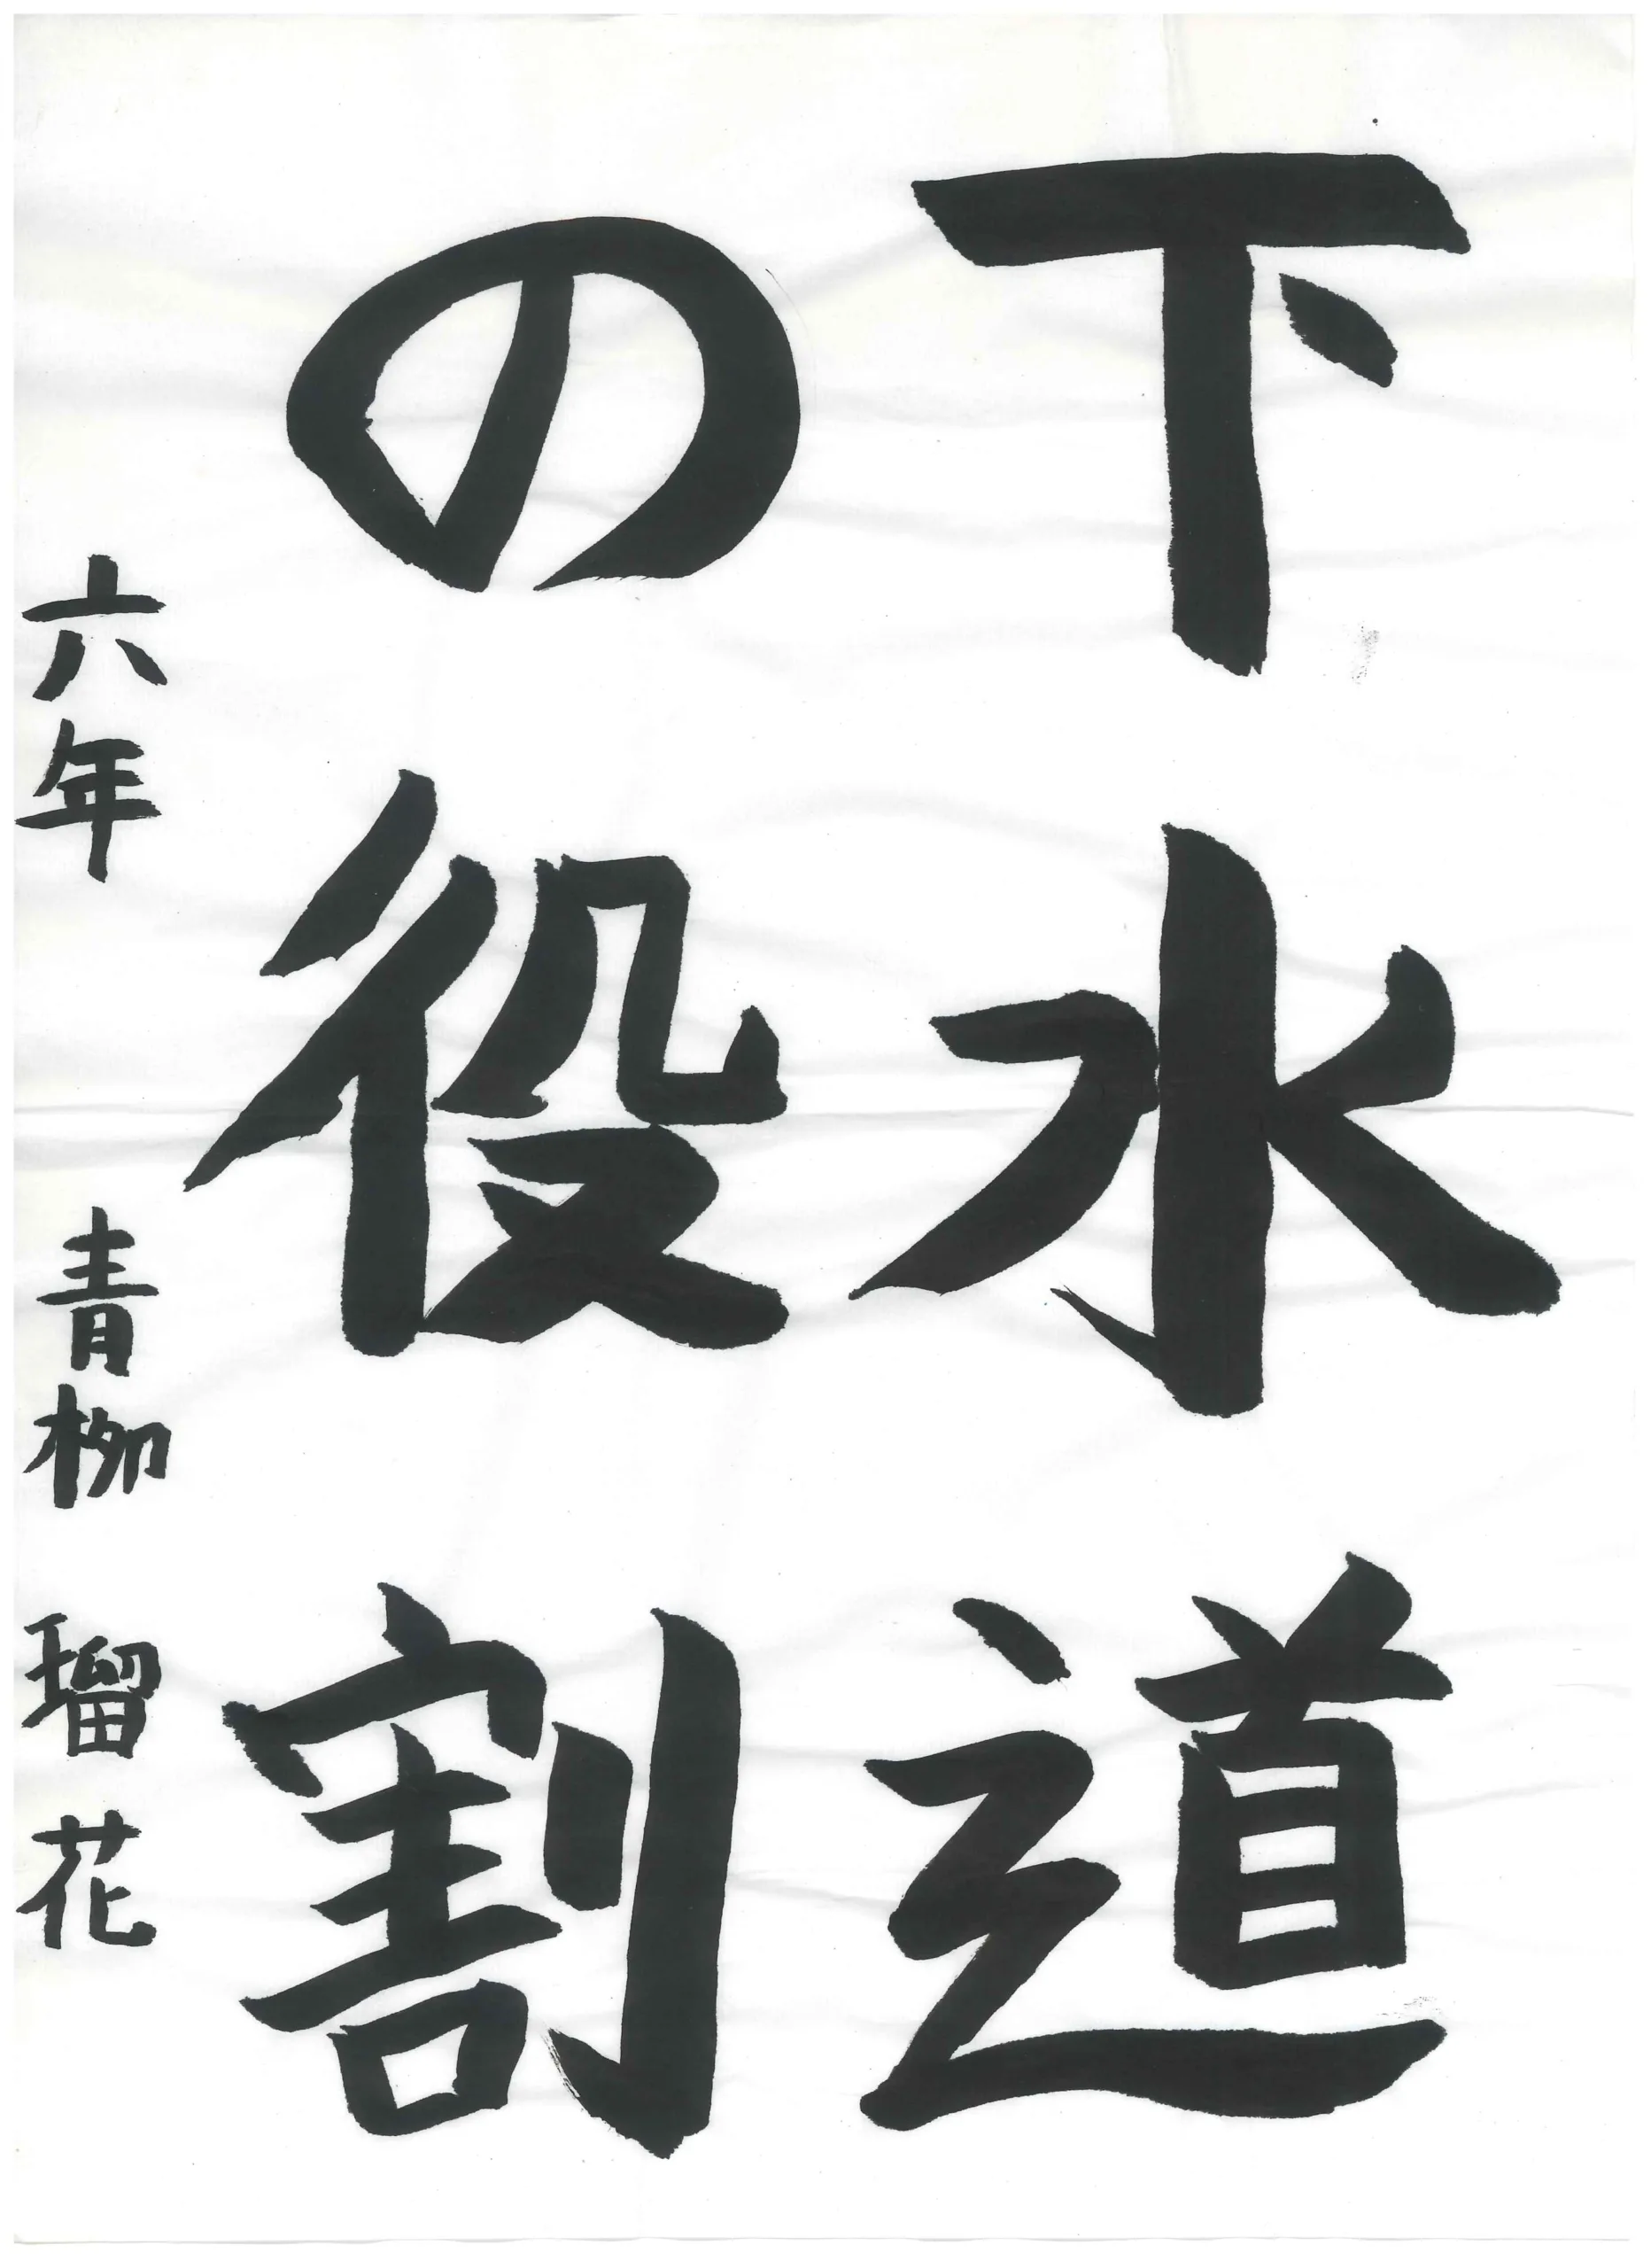 下水道
の役割
六年 青柳 瑠花